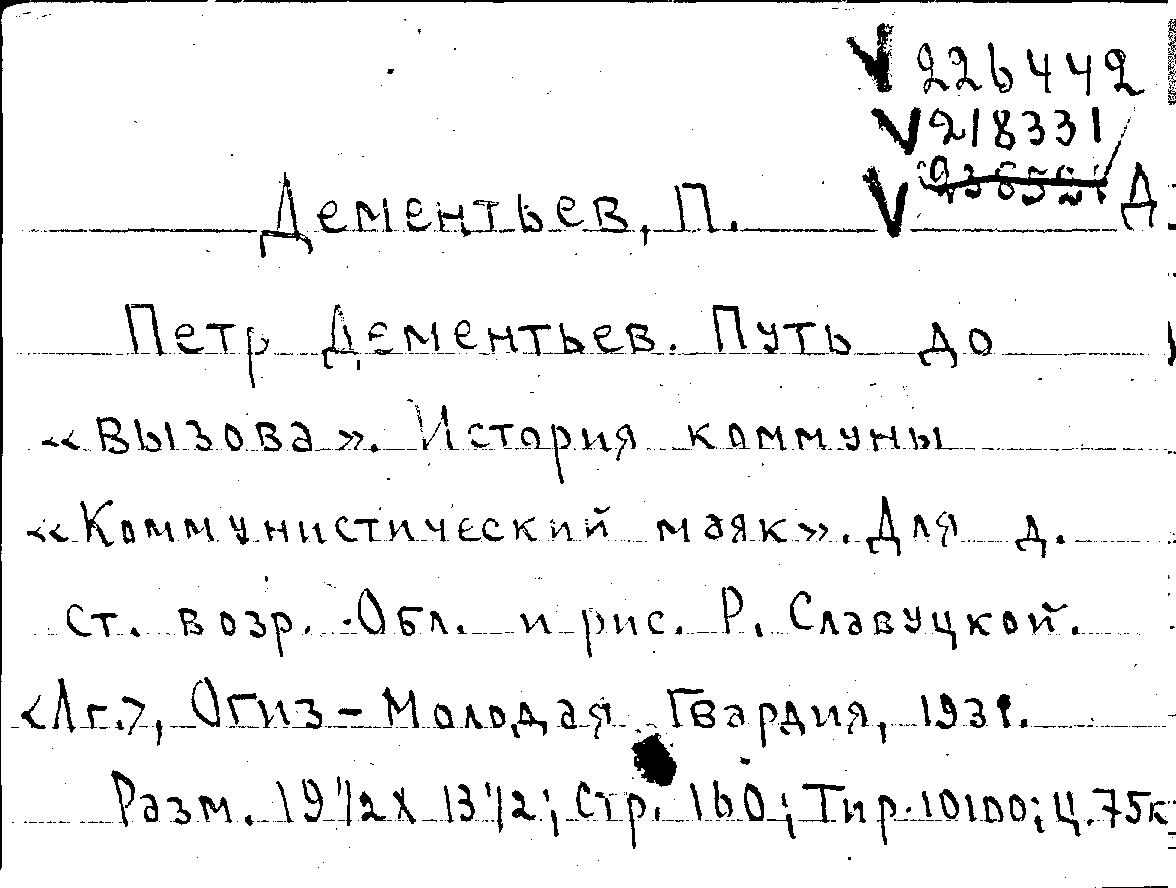 226442
218331
Д.
Дементьев, П.
Петр Дементьев. Путь до
«Вызова». История коммуны
«Коммунистический маяк». Для д.
ст. возр. Обл. и рис. Р. Славуцкой.
<Лг.>, Огиз - Молодая Гвардия, 1931.
Разм. 19 1/2 х 13 1/2; Стр. 160; Тир. 10100; Ц. 75к